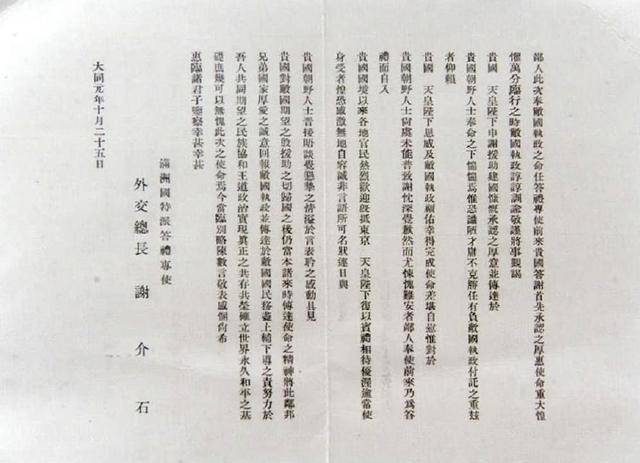 鄙人此次奉敝國執政之命任答禮專使前來貴國答謝首先承認之厚惠使命重大惶
懼萬分臨行之時敝國執政諄諄訓諭敬謹將事覲謁
貴國　天皇陛下申謝援助建國慷慨承認之厚意並傳達於
貴國朝野人士奉命之下惴惴焉惟恐譾陋才庸不克勝任有負敝國執政付託之重玆
者仰賴
貴國　天皇陛下恩威及敝國執政福佑幸得完成使命差堪自慰惟對於
貴國朝野人士尚處未能普致謝忱深覺歉然而尤悚愧難安者鄙人奉使前來乃爲答
禮而自入
貴國國境以來各地官民熱烈歡迎旣抵東京　天皇陛下復以賓禮相待優渥逾常使
身受者惶恐感激無地自容誠非言語所可名狀連日與
貴國朝野人士晋接晤談覺懇摯之情溢於言表聆之感動具見
貴國對敝國期望之殷援助之切歸國之後仍當本諸來時傳達使命之精神將此鄰邦
兄弟國家厚愛之誠意回報敝國執政並傳達於敝國國民務盡上輔下導之責努力於
吾人共同期望之民族協和王道政治實現眞正之共存共榮確立世界永久和平之基
礎也幾可以無愧此次之使命焉今當臨別略陳數言敬表感悃尙希
惠臨諸君子鑒察幸甚幸甚
滿洲國特派答禮專使
外交總長　謝介石
大同元年十月二十五日